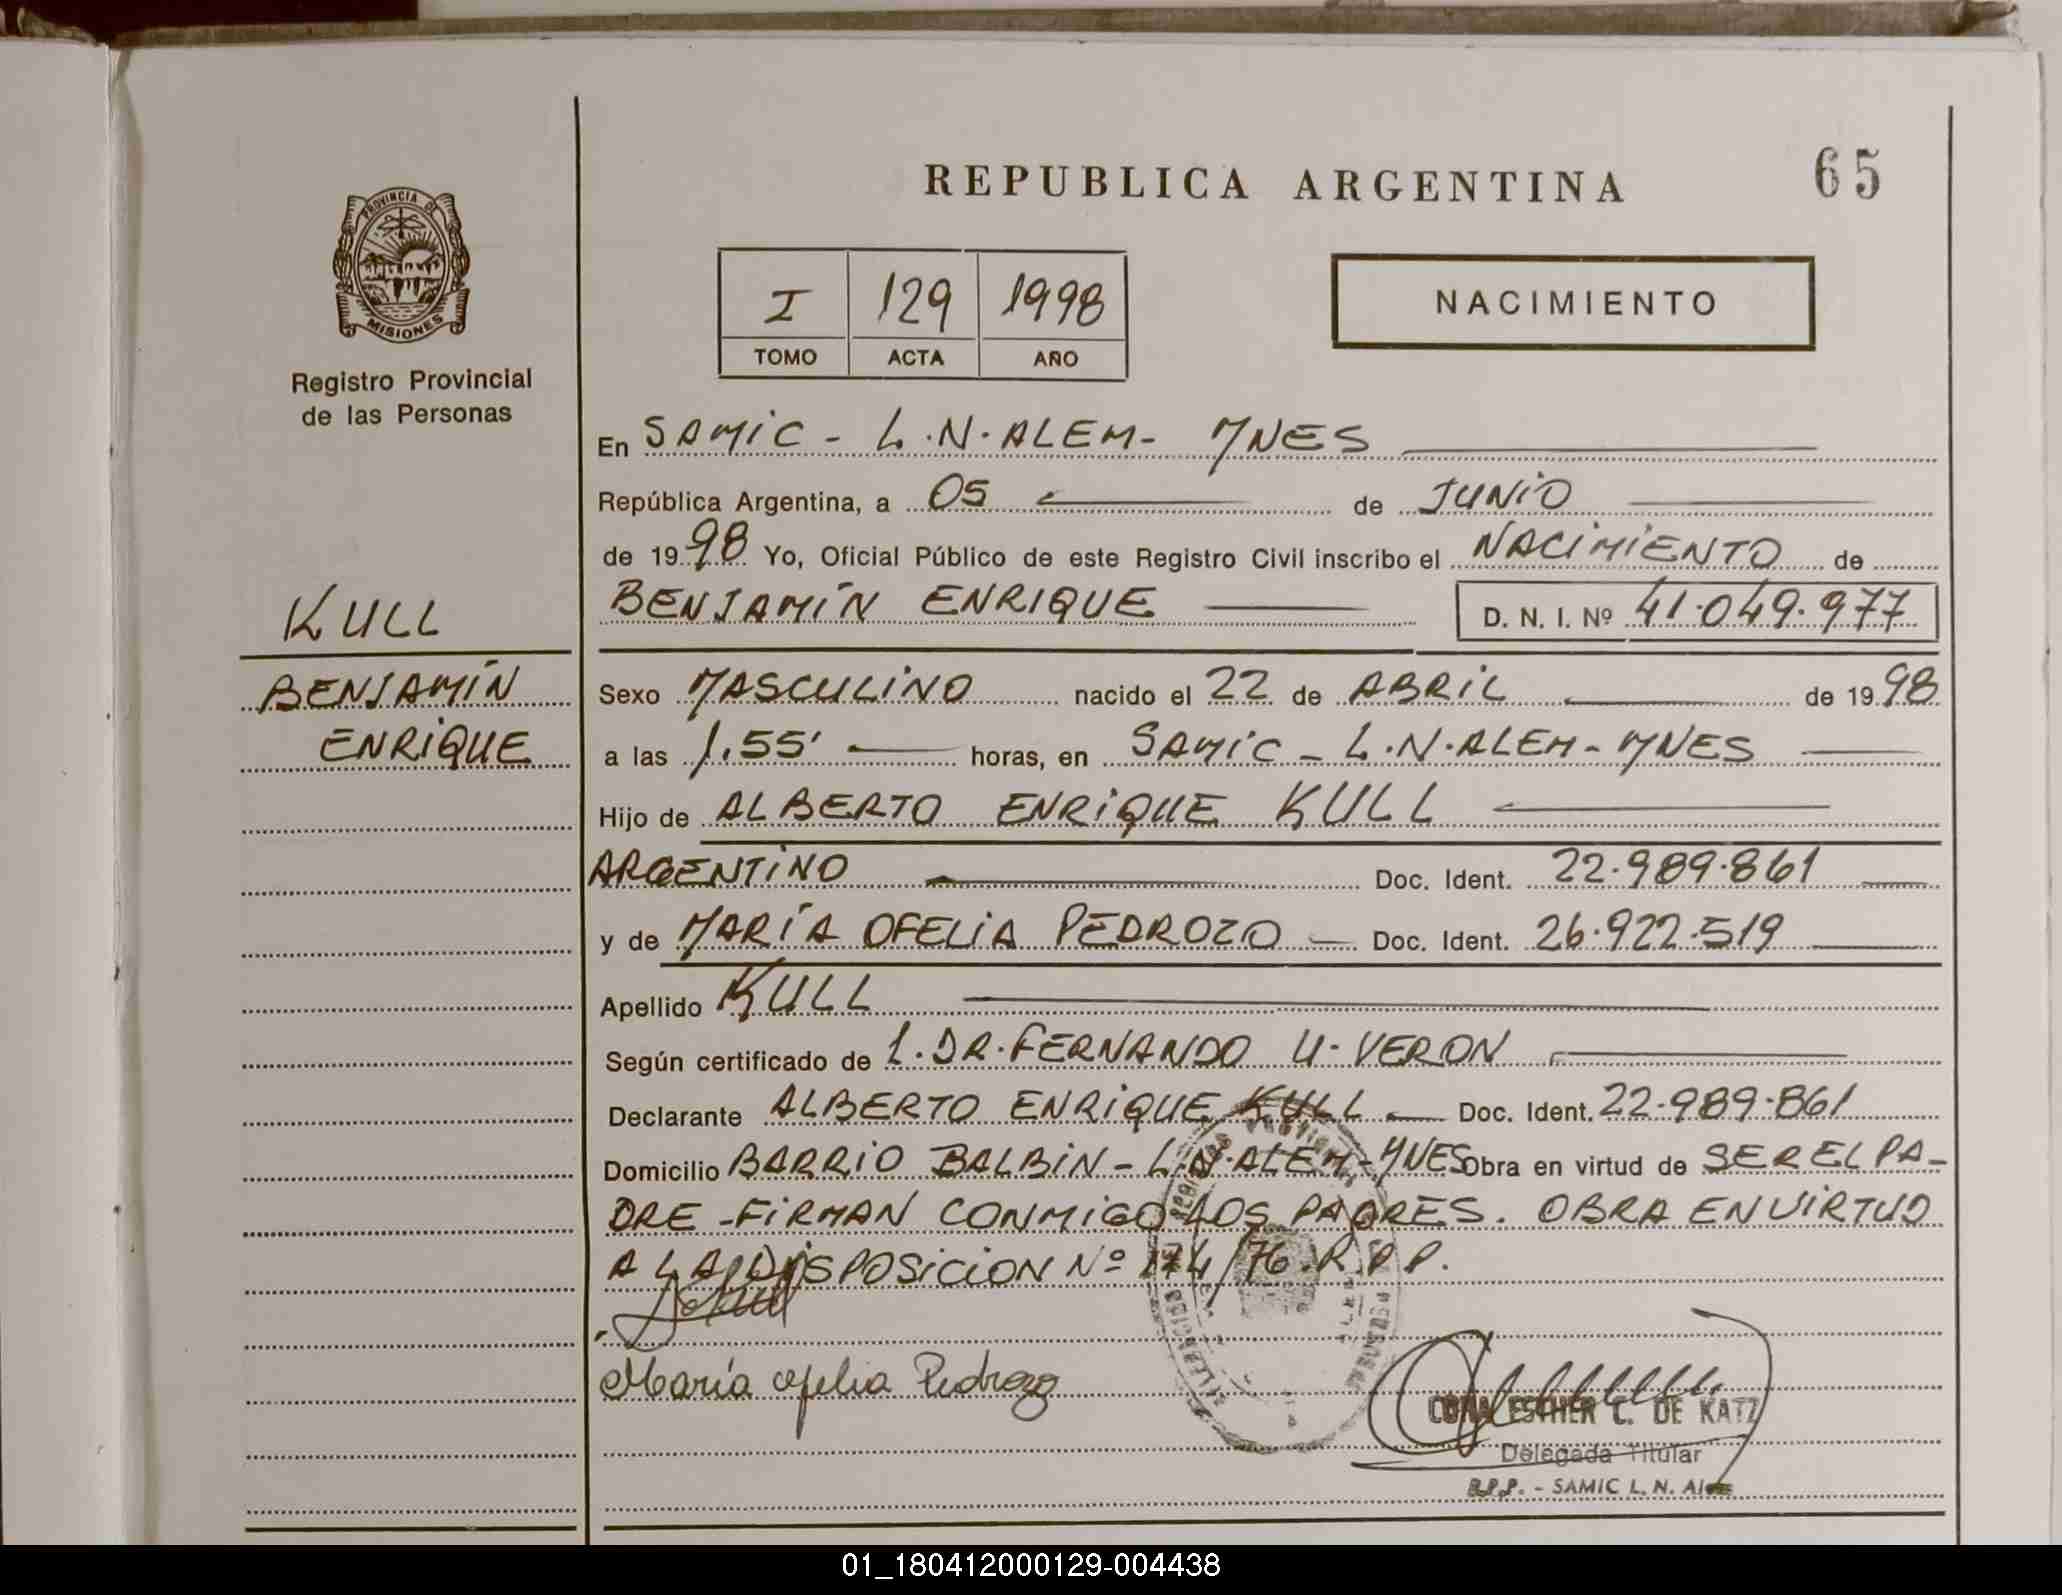 REPUBLICA ARGENTINA
65
PROVINCIA DE
MISIONES
Registro Provincial
de las Personas
I 129 1998
TOMO ACTA AÑO
NACIMIENTO
En SAMIC - L.N.ALEM- MNES
República Argentina, a 05 de JUNIO
de 1998 Yo, Oficial Público de este Registro Civil inscribo el NACIMIENTO de
BENJAMÍN ENRIQUE D. N. I. Nº 41.049.977
KULL
BENJAMÍN
ENRIQUE
Sexo MASCULINO nacido el 22 de ABRIL de 1998
a las 1.55' horas, en SAMIC - L.N.ALEM- MNES
Hijo de ALBERTO ENRIQUE KULL
ARGENTINO Doc. Ident. 22.989.861
y de MARÍA OFELIA PEDROZO Doc. Ident. 26.922.519
Apellido KULL
Según certificado de L.DR.FERNANDO U. VERON
Declarante ALBERTO ENRIQUE KULL Doc. Ident. 22.989.861
Domicilio BARRIO BALBIN - L.N.ALEM - MNES Obra en virtud de SER EL PA-
DRE - FIRMAN CONMIGO LOS PADRES. OBRA EN VIRTUD
A LA DISPOSICION Nº 174/76.R.P.P.
María Ofelia Pedrozo
ESTHER C. DE KATZ
Delegada Titular
R.P.P. - SAMIC L. N. Alem
01_180412000129-004438